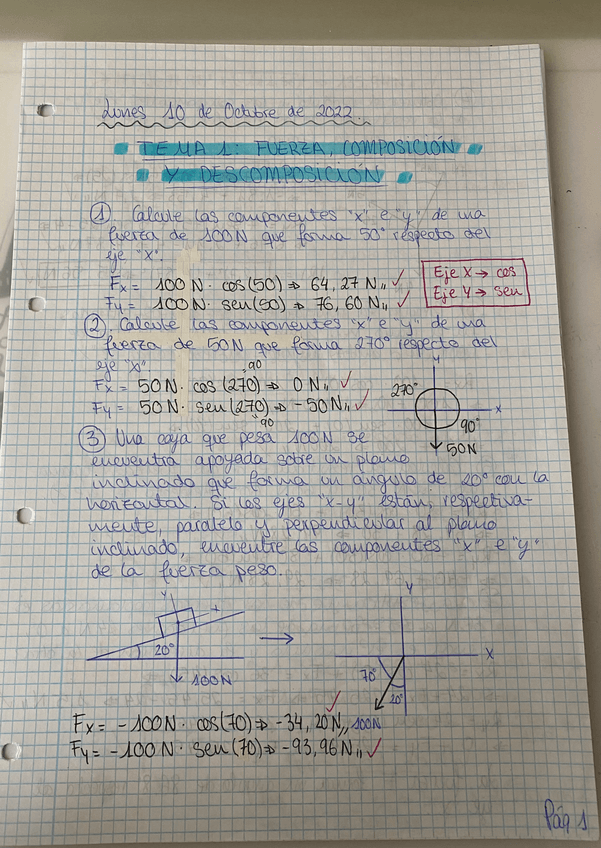 Lunes 10 de Octubre de 2022.
TEMA 1: FUERZA, COMPOSICIÓN
Y DESCOMPOSICIÓN
① Calcule las componentes "x" e "y" de una
fuerza de 100N que forma 50° respecto del
eje "x".
Fx = 100N · cos(50) ⇒ 64,27 N,, ✓
Fy = 100N · sen(50) ⇒ 76,60 N,, ✓
Eje X → cos
Eje Y → sen
② Calcule las componentes "x" e "y" de una
fuerza de 50N que forma 270° respecto del
eje "x"
-90
Fx = 50N · cos(270) ⇒ 0N,, ✓
Fy = 50N · sen(270) ⇒ -50N,, ✓
-90
Y
270°
X
90°
50N
③ Una caja que pesa 100N se
encuentra apoyada sobre un plano
inclinado que forma un ángulo de 20° con la
horizontal. Si los ejes "x-y" están, respectiva-
mente, paralelo y perpendicular al plano
inclinado, encuentre las componentes "x" e "y"
de la fuerza peso.
Y
x
20°
100N
→
Y
X
70°
20°
100N
Fx = -100N · cos(70) ⇒ -34,20N,, ✓
Fy = -100N · sen(70) ⇒ -93,96N,, ✓
Pág 1